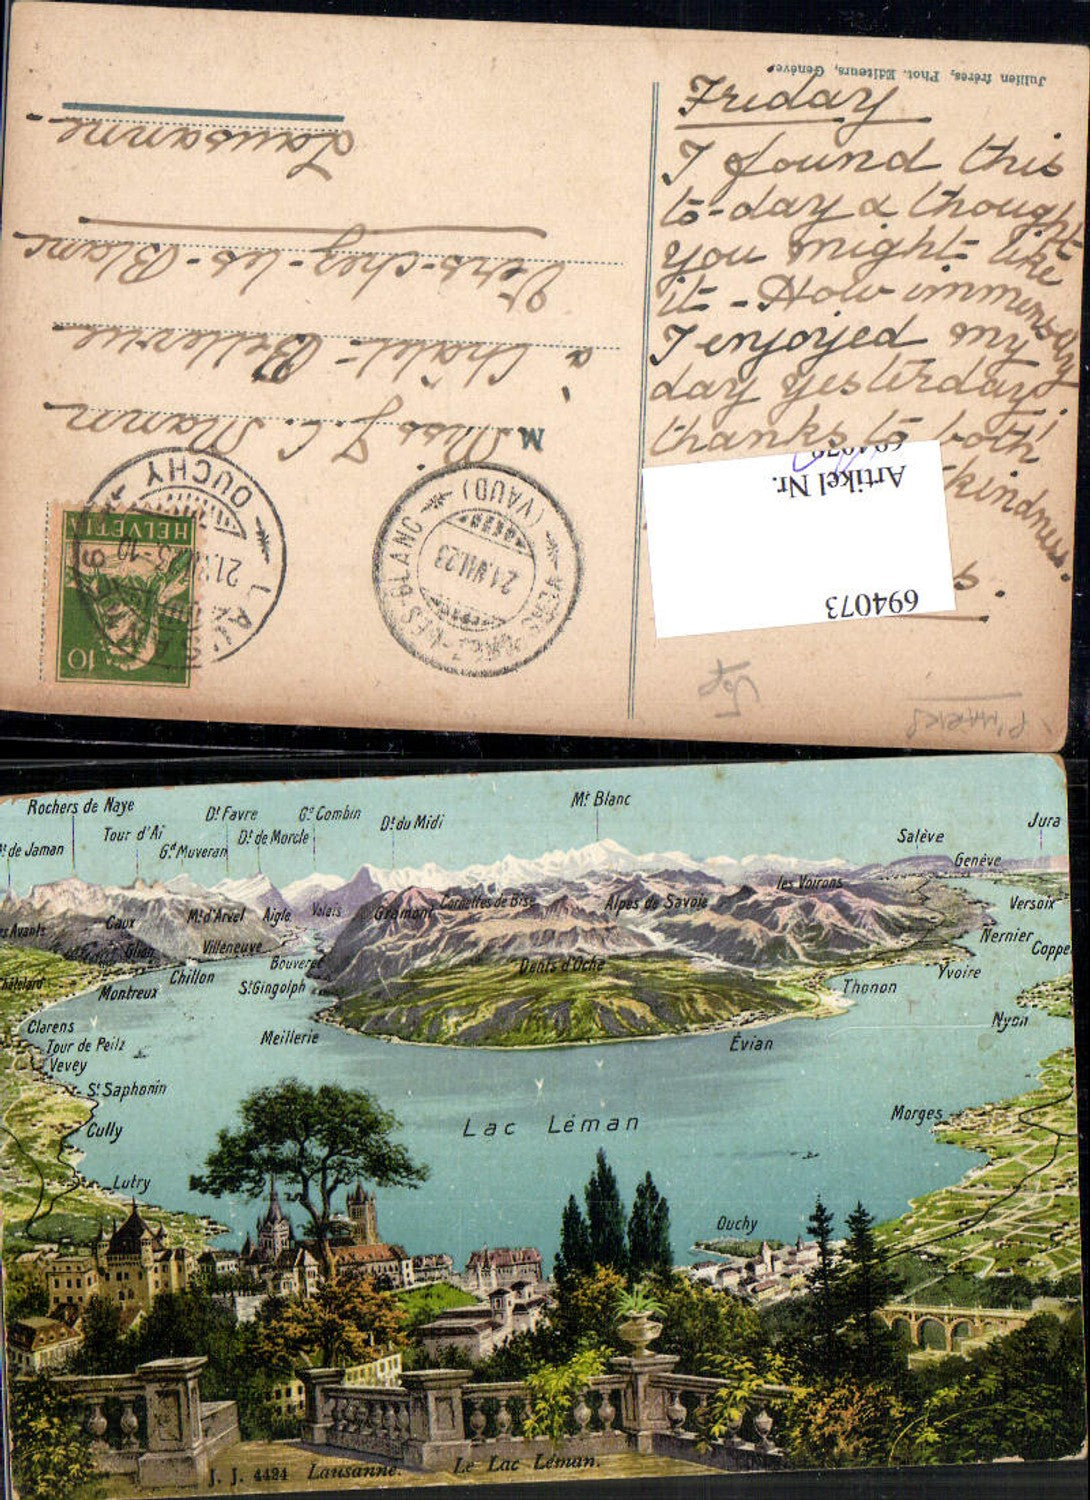 Jullien frères, Phot. Editeurs, Genève.
Friday
I found this
to-day & thought
you might like
it - How immensely
I enjoyed my
day yesterday!
thanks to both
kindness.
s.
Artikel Nr.
694073
M
Miss J. C. Mann
à Châlet-Bellevue
Vers-chez-les-Blanc
Lausanne-
HELVETIA
10
LAUSANNE
OUCHY
VERS-CHEZ-LES-BLANC
(VAUD)
21.VII.23
P'MARKS
Rochers de Naye
Dt Favre
Gd Combin
Mt Blanc
Jura
Tour d'Aï
Dt de Morcle
Dt du Midi
Salève
de Jaman
Gd Muveran
Genève
les Voirons
Cornettes de Bise
Alpes de Savoie
Versoix
Caux
Mt d'Arvel
Aigle
Valais
Gramont
Avants
Nernier
Glion
Villeneuve
Coppe
Bouveret
Dents d'Oche
Yvoire
Châtelard
Chillon
Montreux
St Gingolph
Thonon
Nyon
Clarens
Meillerie
Évian
Tour de Peilz
Vevey
St Saphonin
Lac Léman
Morges
Cully
Lutry
Ouchy
J. J. 4424 Lausanne. Le Lac Léman.